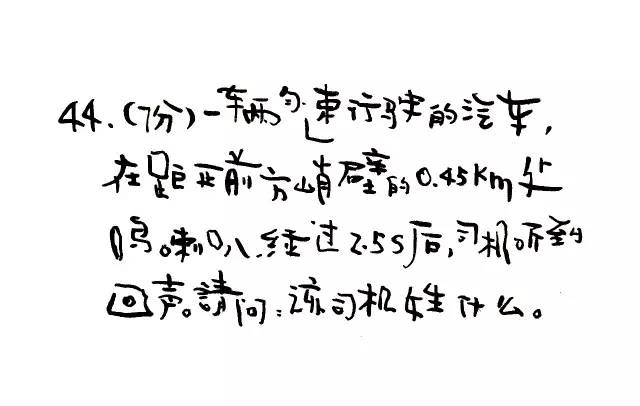 44.(7分)一车两匀速行驶的汽车,
在距正前方峭壁的0.45Km处
鸣喇叭,经过2.5S后,司机听到
回声。請问:该司机姓什么。